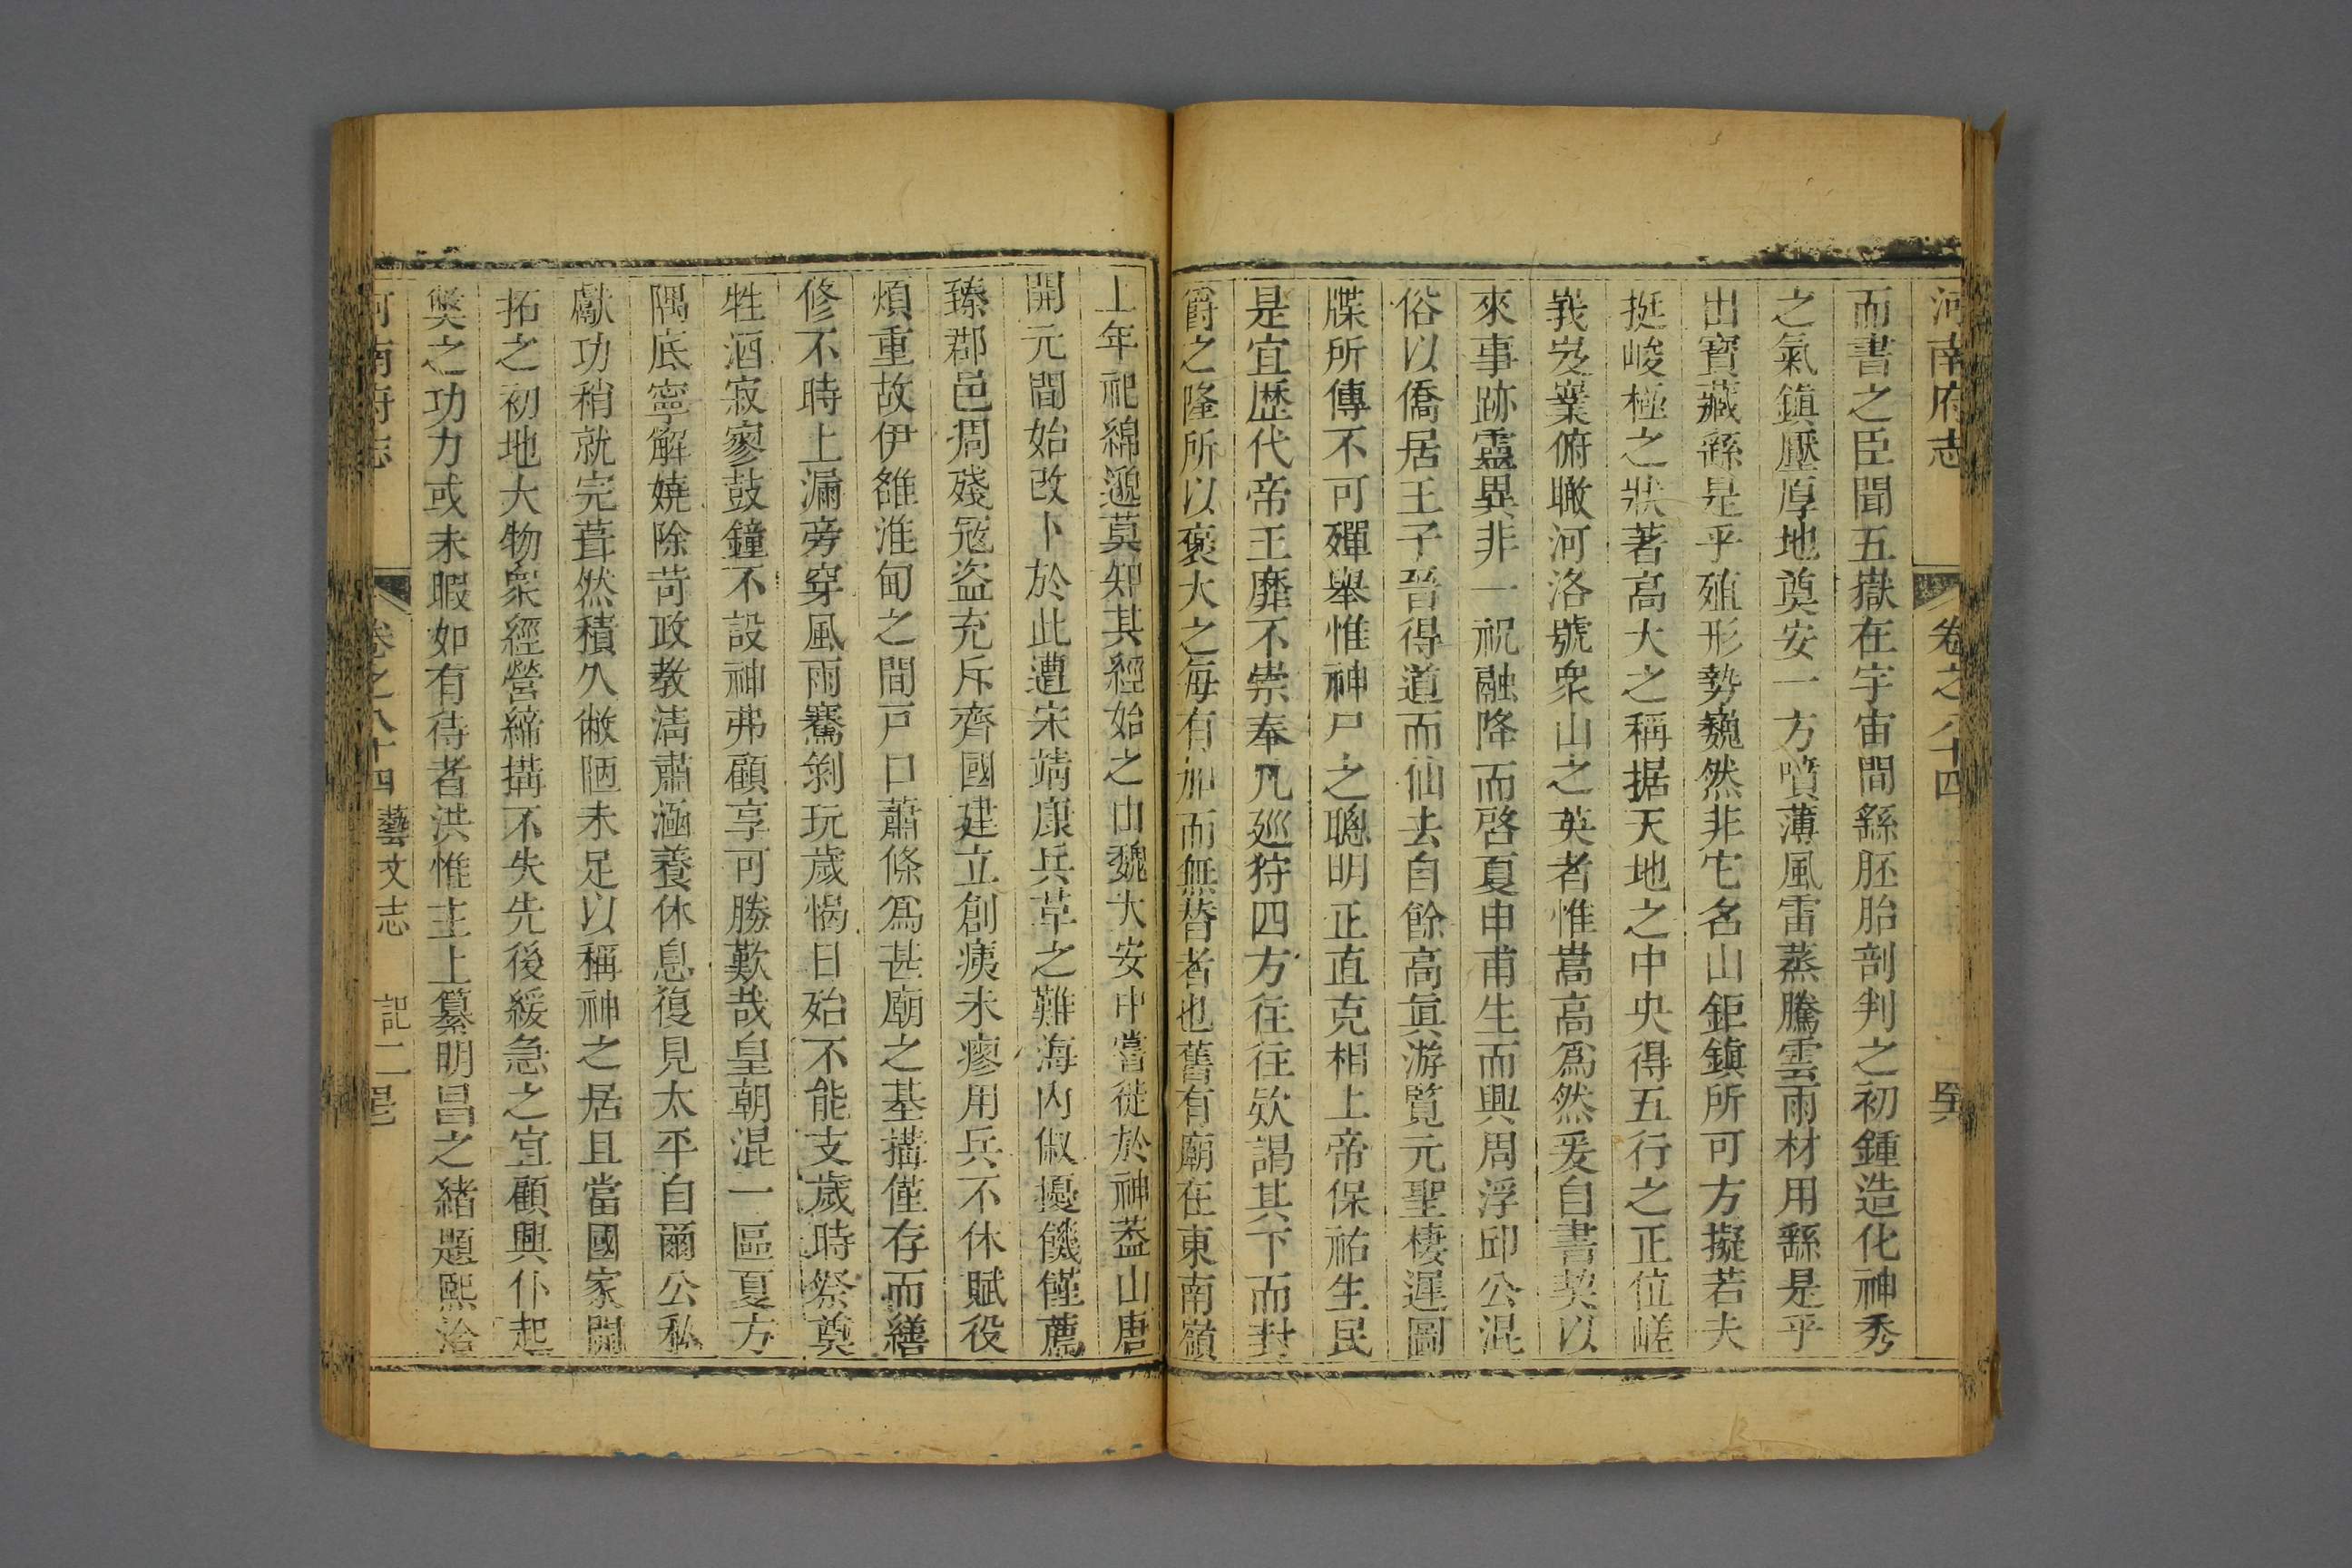 河南府志 卷之八十四
而書之臣聞五嶽在宇宙間繇胚胎剖判之初鍾造化神秀
之氣鎮壓厚地奠安一方噴薄風雷蒸騰雲雨材用繇是乎
出寶藏繇是乎殖形勢巍然非它名山鉅鎮所可方擬若夫
挺峻極之狀著高大之稱据天地之中央得五行之正位嵯
峩岌嶪俯瞰河洛號眾山之英者惟嵩高爲然爰自書契以
來事跡靈異非一祝融降而啓夏申甫生而興周浮邱公混
俗以僑居王子晉得道而仙去自餘高眞游覽元聖棲遲圖
牒所傳不可殫舉惟神尸之聰明正直克相上帝保祐生民
是宜歷代帝王靡不崇奉凡廵狩四方往往欵謁其下而封
爵之隆所以褒大之每有加而無替者也舊有廟在東南嶺
上年祀綿邈莫知其經始之由魏大安中嘗徙於神蓋山唐
開元間始改卜於此遭宋靖康兵革之難海內俶擾饑饉薦
臻郡邑凋殘冦盜充斥齊國建立創痍未瘳用兵不休賦役
煩重故伊雒淮甸之間戸口蕭條爲甚廟之基搆僅存而繕
修不時上漏旁穿風雨騫剝玩歲愒日殆不能支歲時祭奠
牲酒寂寥鼓鐘不設神弗顧享可勝歎哉皇朝混一區夏方
隅底寧解嬈除苛政教淸肅涵養休息復見太平自爾公私
獻功稍就完葺然積久敝陋未足以稱神之居且當國家開
拓之初地大物衆經營締搆不失先後緩急之宜顧興仆起
獘之功力或未暇如有待者洪惟主上纂明昌之緒題熙洽
河南府志 卷之八十四 藝文志 記二